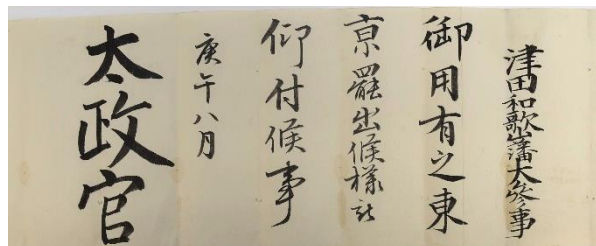 津田和歌山藩大參事
御用有之東
京罷出候様被
仰付候事
庚午八月
太政官